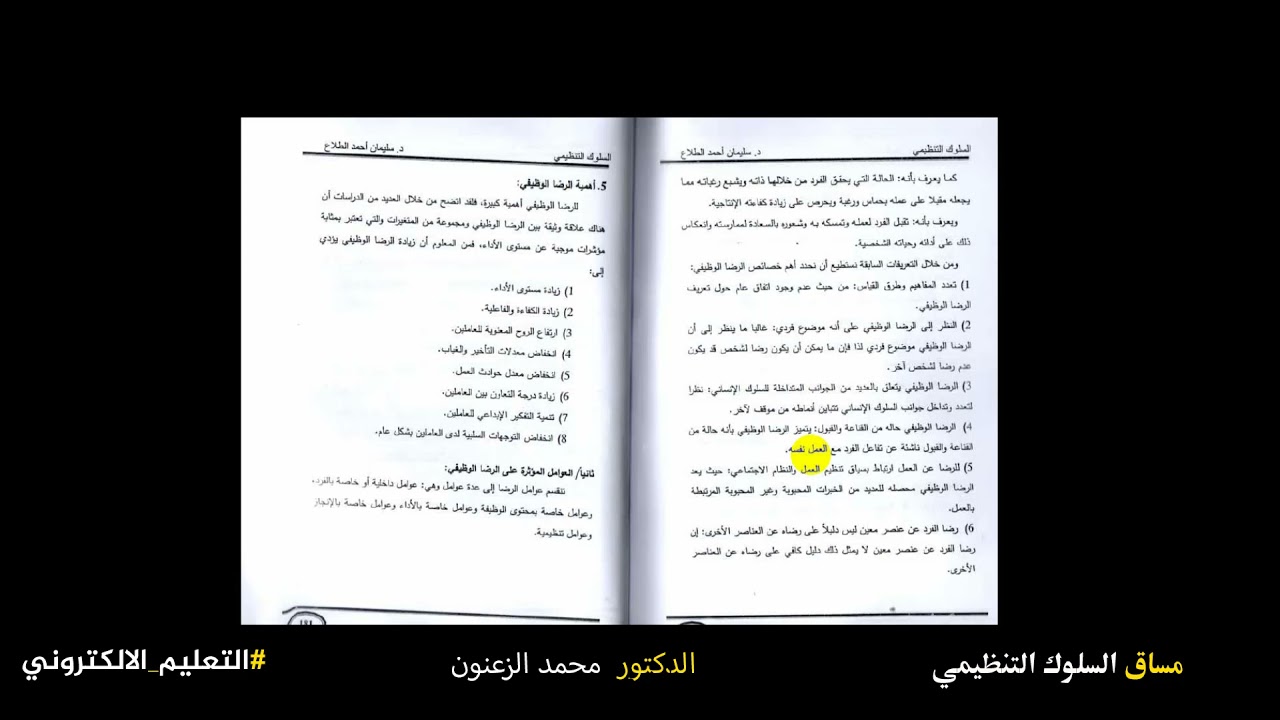 السلوك التنظيمي د. سليمان أحمد الطلاع
كما يعرف بأنه: الحالة التي يحقق الفرد من خلالها ذاته ويشبع رغباته مما
يجعله مقبلا على عمله بحماس ورغبة ويحرص على زيادة كفاءته الإنتاجية.
ويعرف بأنه: تقبل الفرد لعمله وتمسكه به وشعوره بالسعادة لممارسته وانعكاس
ذلك على أدائه وحياته الشخصية.
ومن خلال التعريفات السابقة نستطيع أن نحدد أهم خصائص الرضا الوظيفي:
1) تعدد المفاهيم وطرق القياس: من حيث عدم وجود اتفاق عام حول تعريف
الرضا الوظيفي.
2) النظر إلى الرضا الوظيفي على أنه موضوع فردي: غالبا ما ينظر إلى أن
الرضا الوظيفي موضوع فردي لذا فإن ما يمكن أن يكون رضا لشخص قد يكون
عدم رضا لشخص آخر.
3) الرضا الوظيفي يتعلق بالعديد من الجوانب المتداخلة للسلوك الإنساني: نظرا
لتعدد وتداخل جوانب السلوك الإنساني تتباين أنماطه من موقف لآخر.
4) الرضا الوظيفي حاله من القناعة والقبول: يتميز الرضا الوظيفي بأنه حالة من
القناعة والقبول ناشئة عن تفاعل الفرد مع العمل نفسه.
5) للرضا عن العمل ارتباط بسياق تنظيم العمل والنظام الاجتماعي: حيث يعد
الرضا الوظيفي محصله للعديد من الخبرات المحبوبة وغير المحبوبة المرتبطة
بالعمل.
6) رضا الفرد عن عنصر معين ليس دليلاً على رضاه عن العناصر الأخرى: إن
رضا الفرد عن عنصر معين لا يمثل ذلك دليل كافي على رضاه عن العناصر
الأخرى.
السلوك التنظيمي د. سليمان أحمد الطلاع
5. أهمية الرضا الوظيفي:
للرضا الوظيفي أهمية كبيرة، فلقد اتضح من خلال العديد من الدراسات أن
هناك علاقة وثيقة بين الرضا الوظيفي ومجموعة من المتغيرات والتي تعتبر بمثابة
مؤشرات موجبة عن مستوى الأداء، فمن المعلوم أن زيادة الرضا الوظيفي يؤدي
إلى:
1) زيادة مستوى الأداء.
2) زيادة الكفاءة والفاعلية.
3) ارتفاع الروح المعنوية للعاملين.
4) انخفاض معدلات التأخير والغياب.
5) انخفاض معدل حوادث العمل.
6) زيادة درجة التعاون بين العاملين.
7) تنمية التفكير الإبداعي للعاملين.
8) انخفاض التوجهات السلبية لدى العاملين بشكل عام.
ثانيا/ العوامل المؤثرة على الرضا الوظيفي:
تنقسم عوامل الرضا إلى عدة عوامل وهي: عوامل داخلية أو خاصة بالفرد،
وعوامل خاصة بمحتوى الوظيفة وعوامل خاصة بالأداء وعوامل خاصة بالإنجاز
وعوامل تنظيمية.
181
مساق السلوك التنظيمي
الدكتور محمد الزعنون
#التعليم_الالكتروني